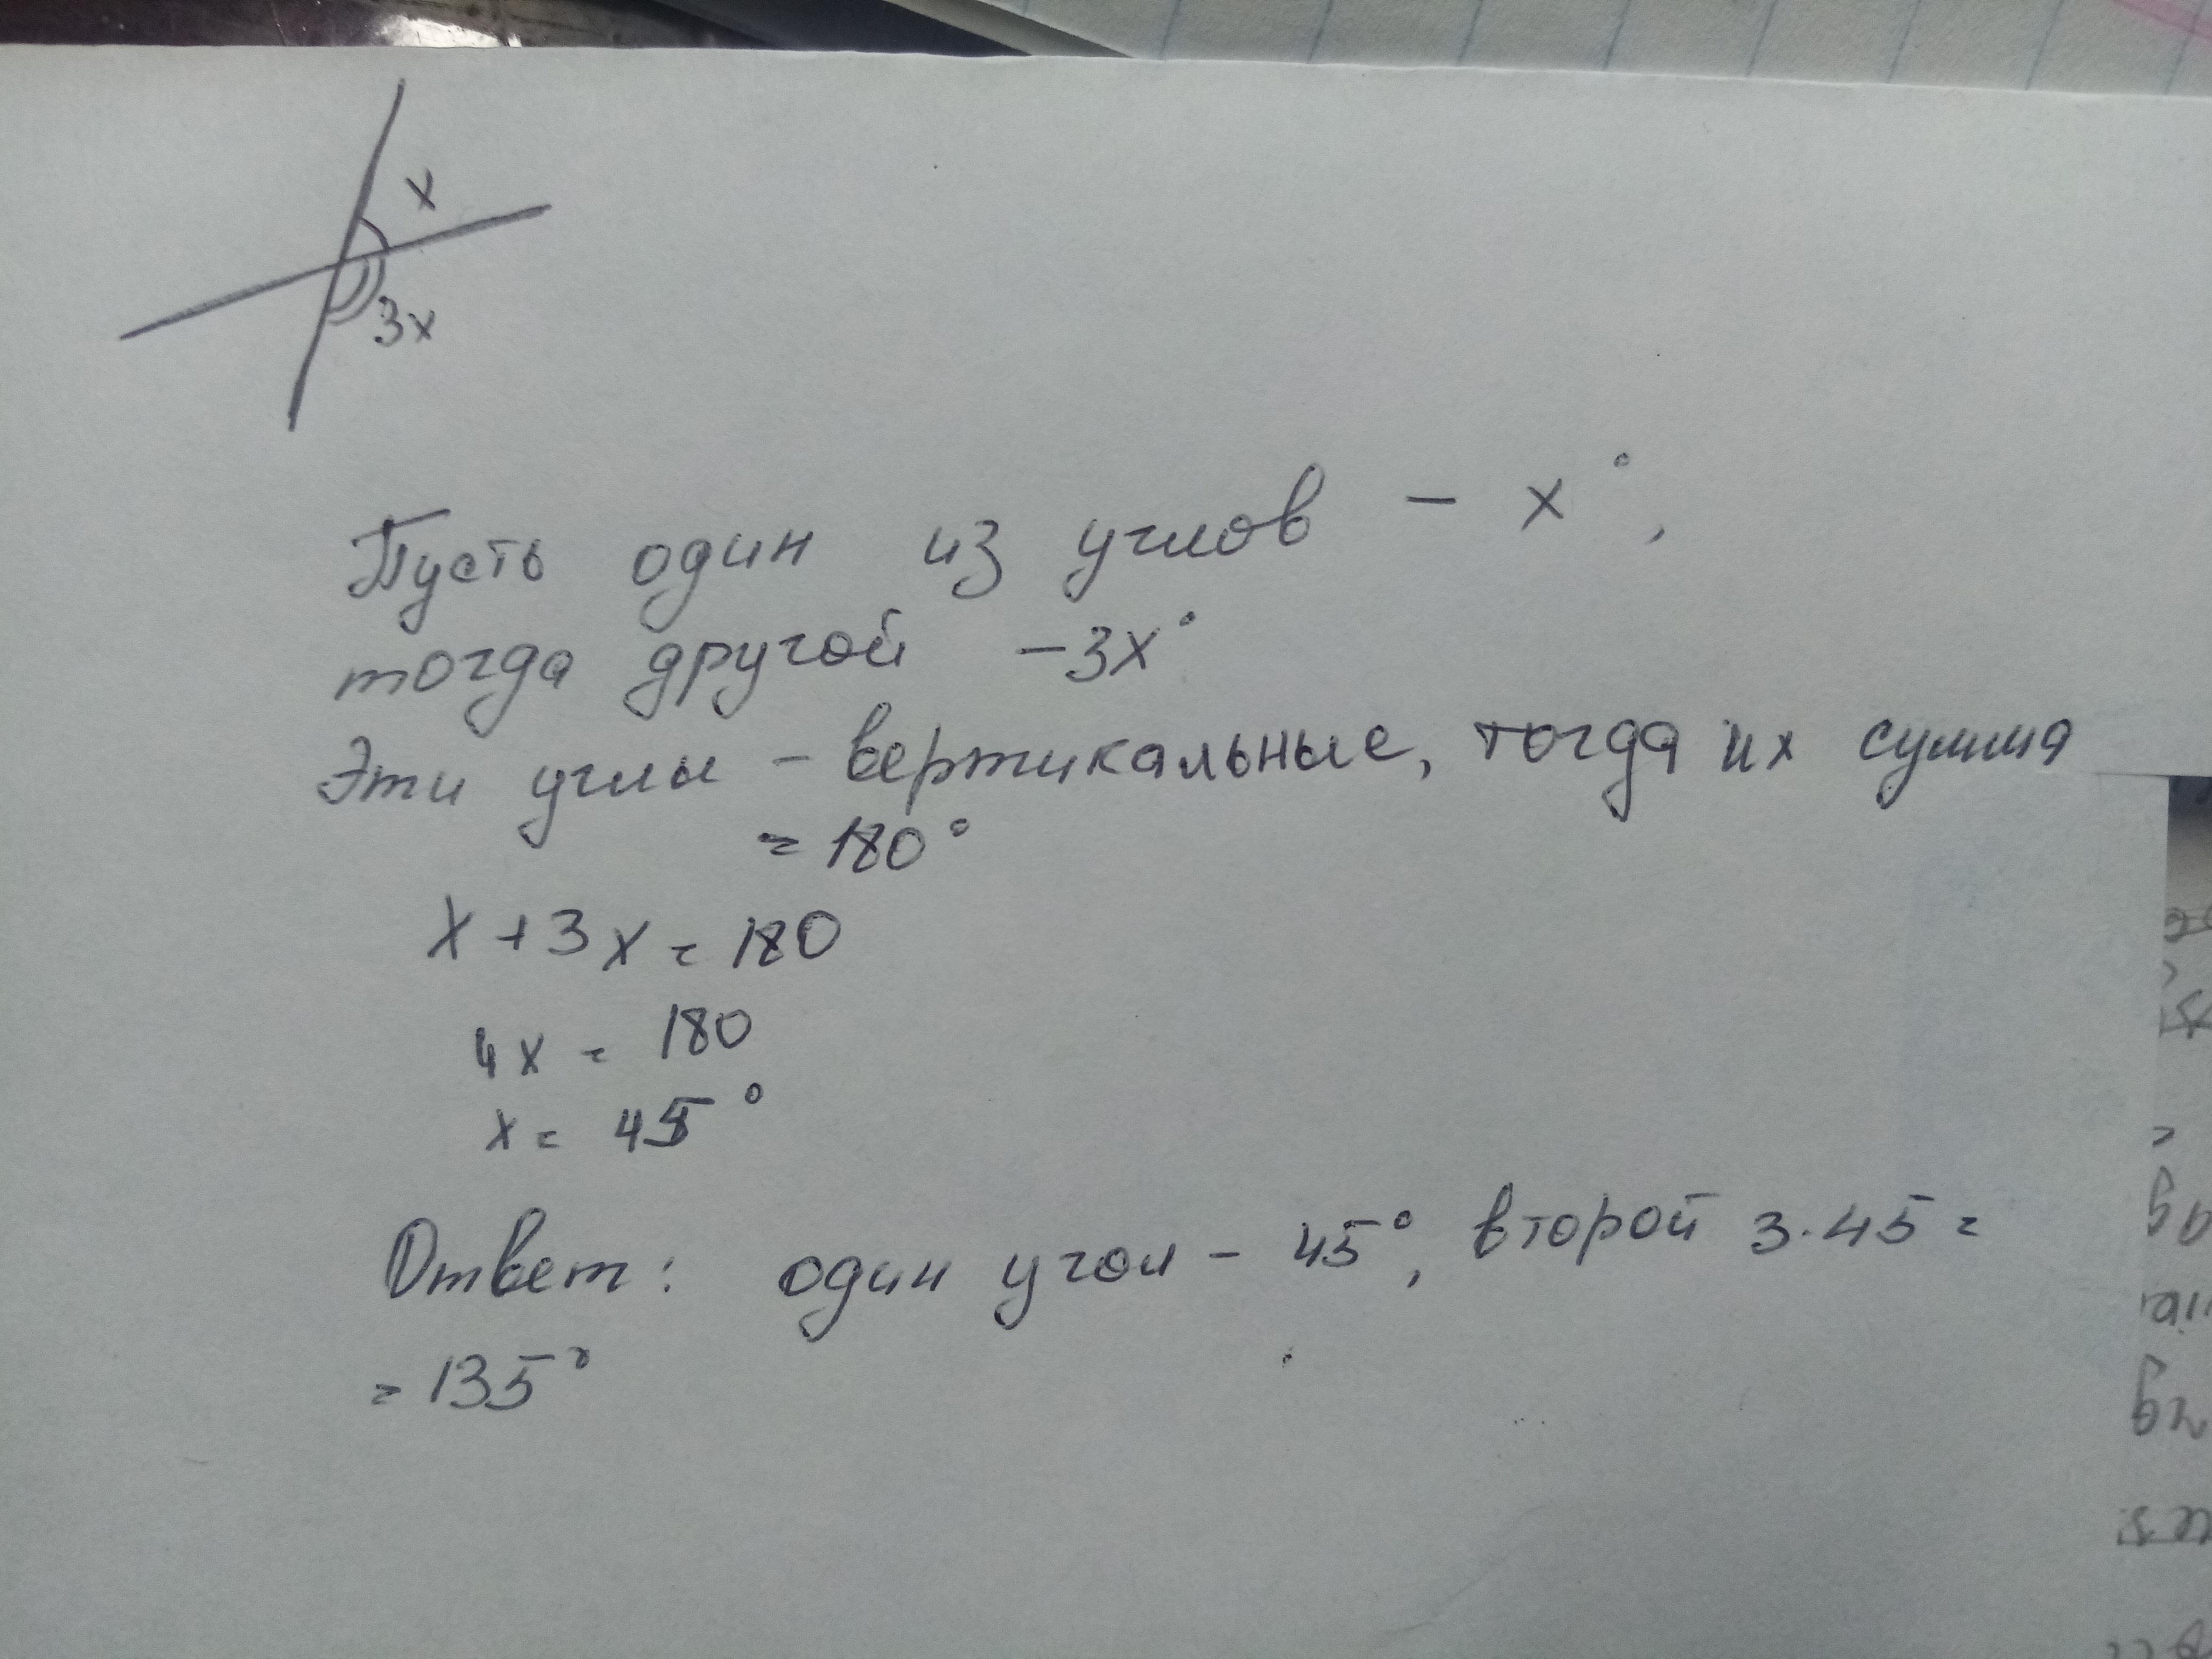 x
3x
Пусть один из углов – x°,
тогда другой – 3x°
Эти углы – вертикальные, тогда их сумма
= 180°
x + 3x = 180
4x = 180
x = 45°
Ответ: один угол – 45°, второй 3·45 =
= 135°